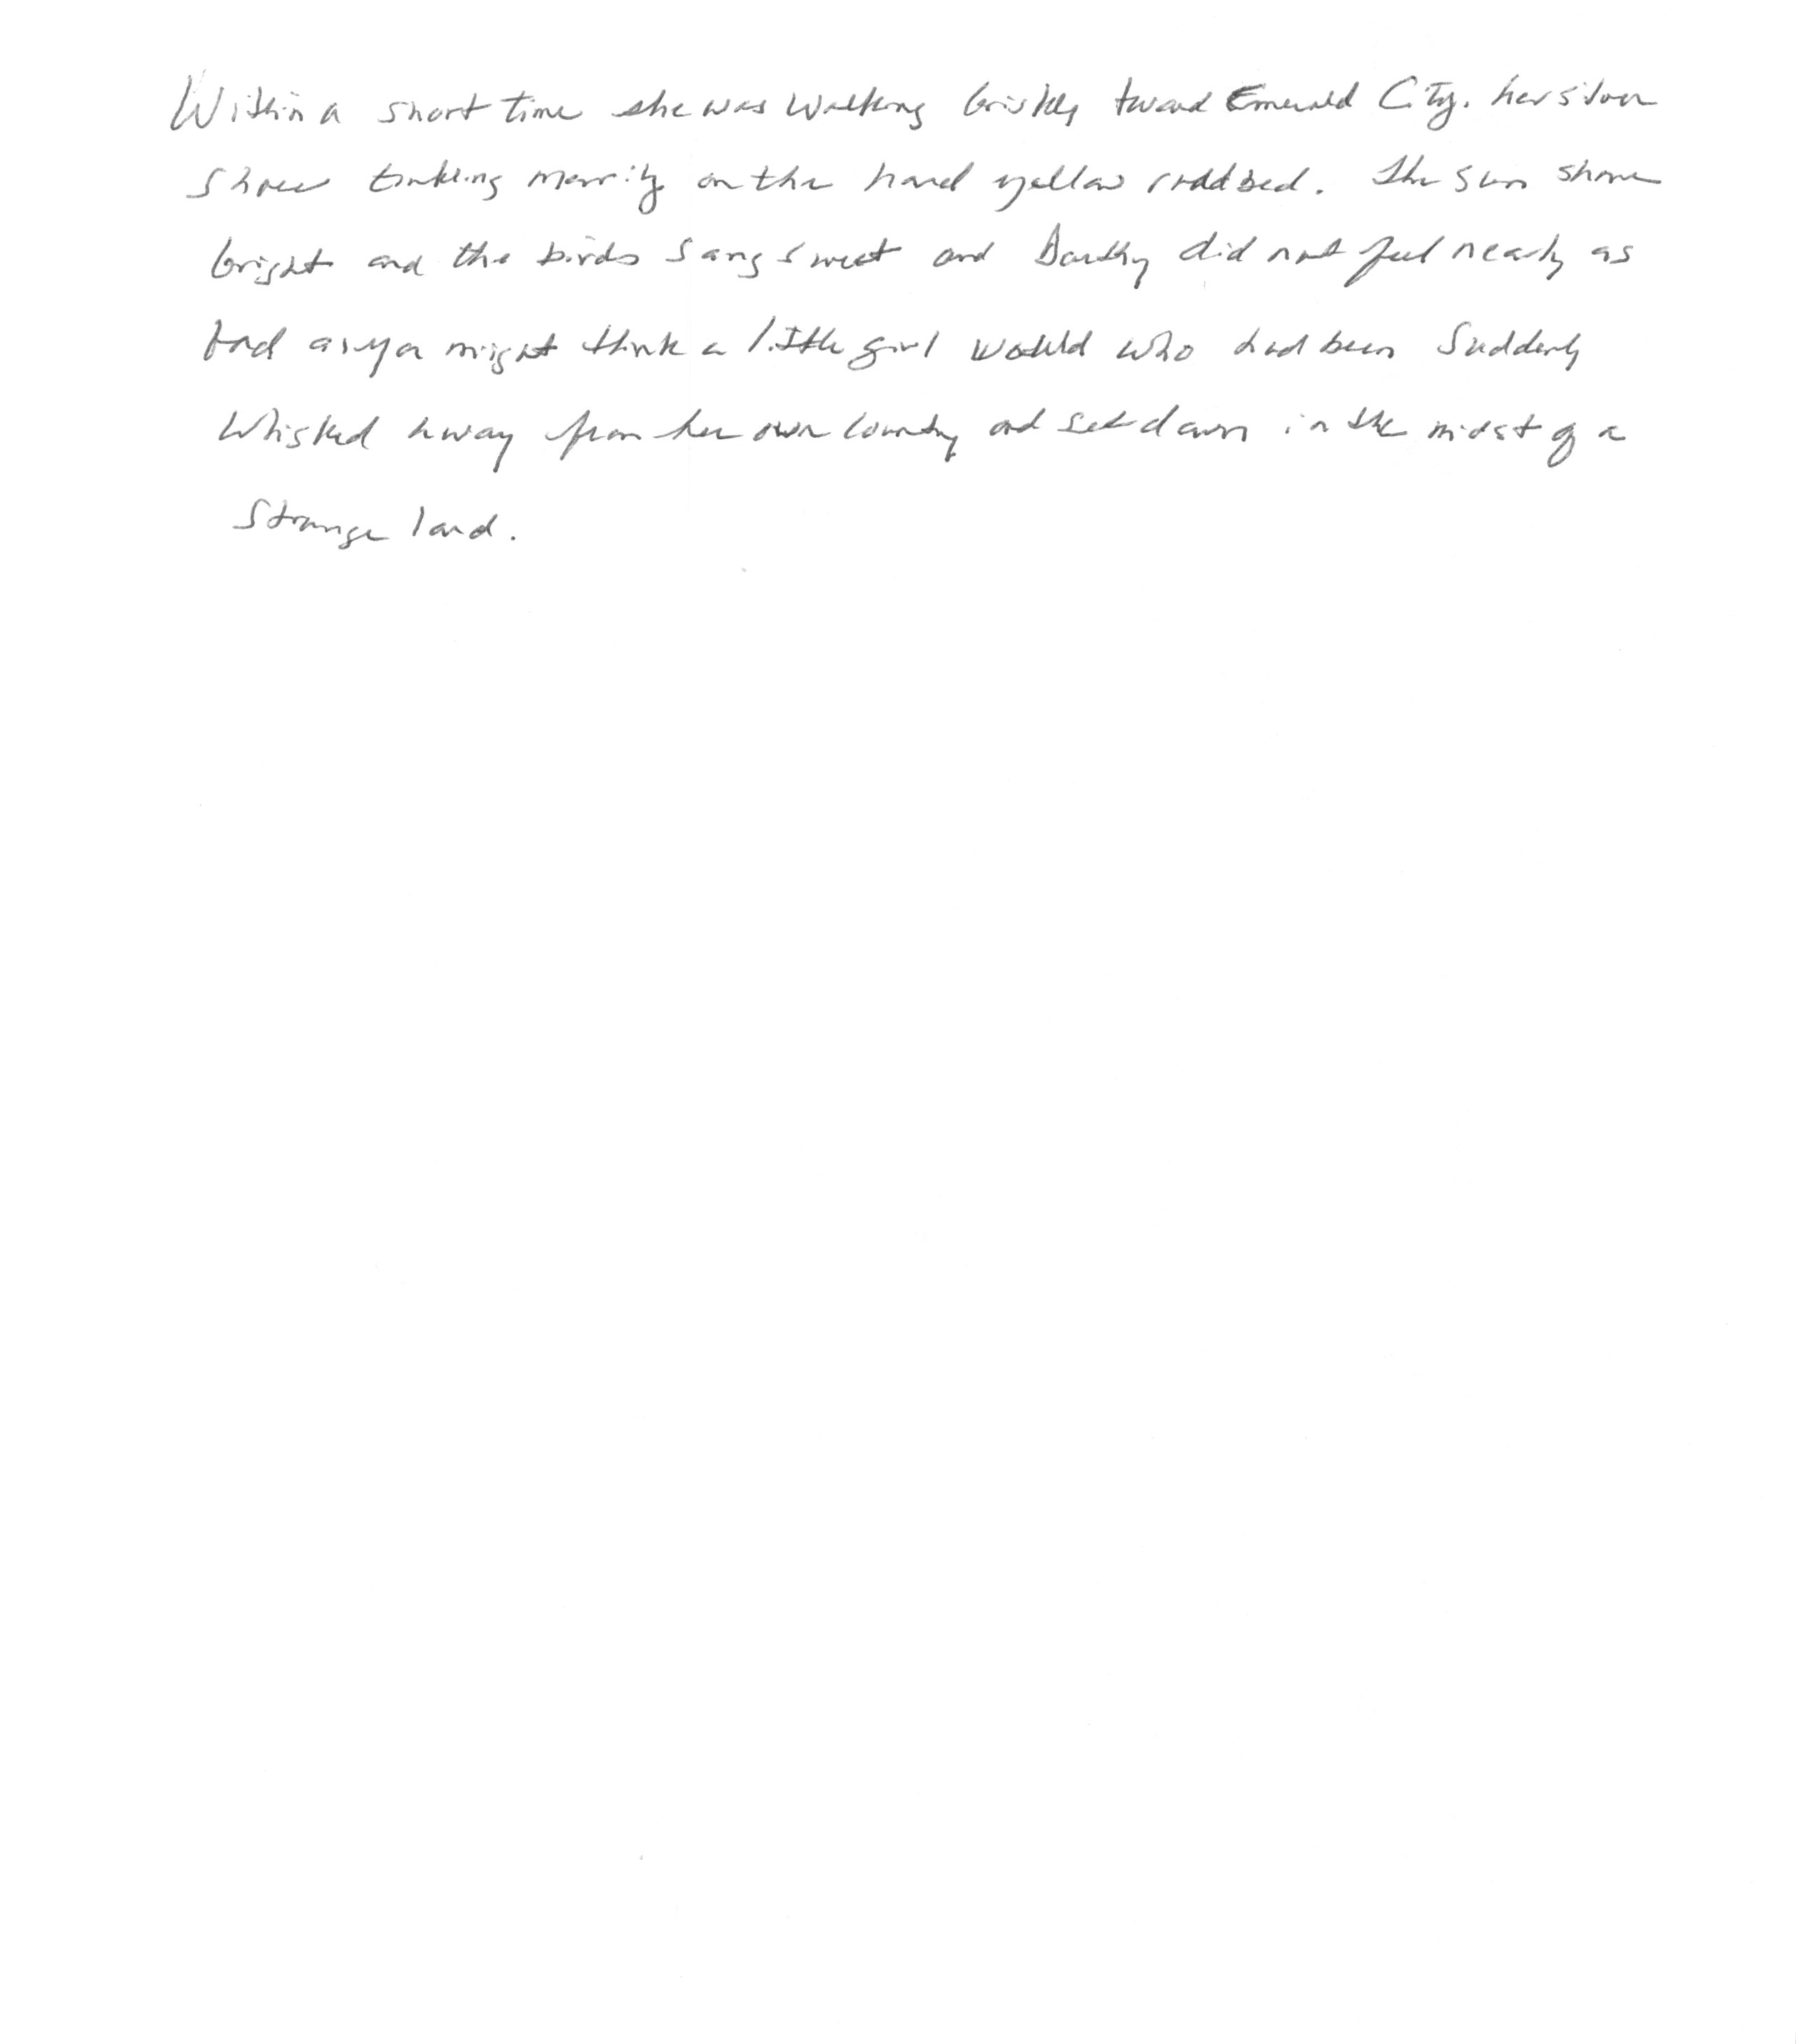 Within a short time she was walking briskly toward Emerald City. her silver
shoes tinkling merrily on the hard yellow roadbed. The sun shone
bright and the birds sang sweet and Dorothy did not feel nearly as
bad as you might think a little girl would who had been suddenly
whisked away from her own country and set down in the midst of a
strange land.